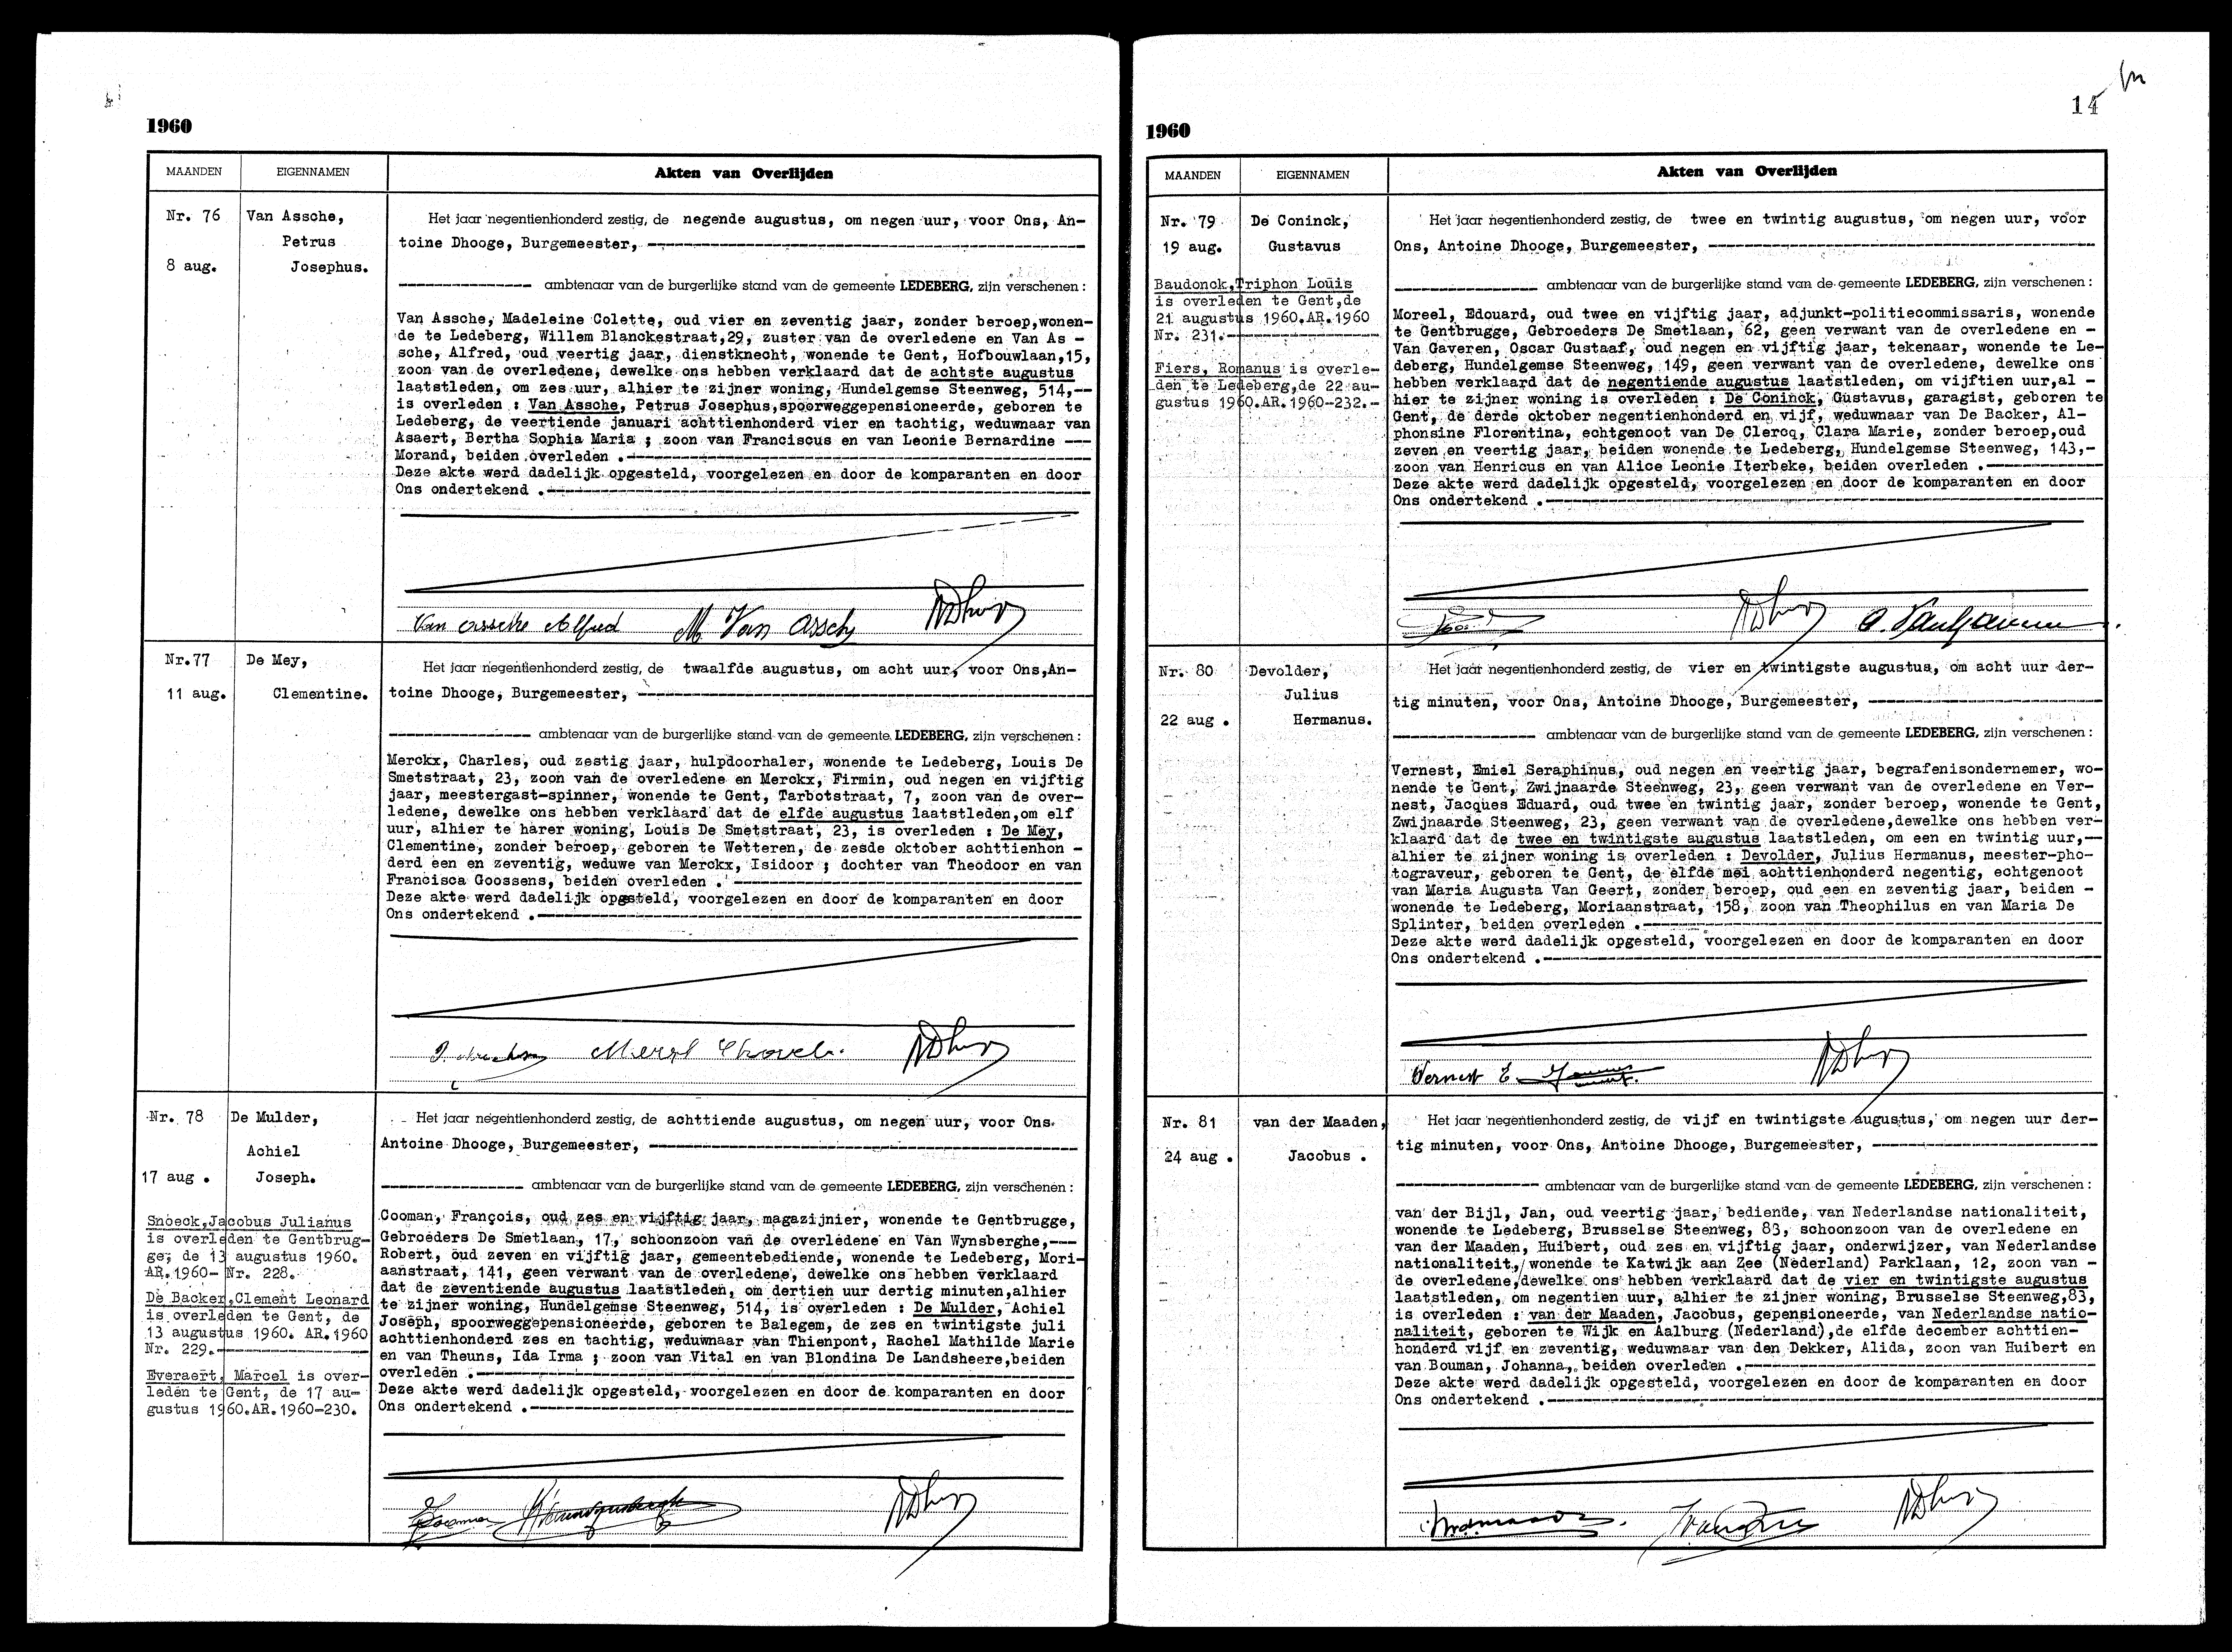 1960
MAANDEN EIGENNAMEN Akten van Overlijden
Nr. 76
8 aug.
Van Assche,
Petrus
Josephus.
Het jaar negentienhonderd zestig, de negende augustus, om negen uur, voor Ons, An-
toine Dhooge, Burgemeester,
ambtenaar van de burgerlijke stand van de gemeente LEDEBERG, zijn verschenen :
Van Assche, Madeleine Colette, oud vier en zeventig jaar, zonder beroep,wonen-
de te Ledeberg, Willem Blanckestraat,29, zuster van de overledene en Van As -
sche, Alfred, oud veertig jaar, dienstknecht, wonende te Gent, Hofbouwlaan,15,
zoon van de overledene, dewelke ons hebben verklaard dat de achtste augustus
laatstleden, om zes uur, alhier te zijner woning, Hundelgemse Steenweg, 514,--
is overleden : Van Assche, Petrus Josephus,spoorweggepensioneerde, geboren te
Ledeberg, de veertiende januari achttienhonderd vier en tachtig, weduwnaar van
Asaert, Bertha Sophia Maria ; zoon van Franciscus en van Leonie Bernardine ---
Morand, beiden overleden .-
Deze akte werd dadelijk opgesteld, voorgelezen en door de komparanten en door
Ons ondertekend .-
Van assche Alfred M. Van Assche ADhooge
Nr.77
11 aug.
De Mey,
Clementine.
Het jaar negentienhonderd zestig, de twaalfde augustus, om acht uur, voor Ons,An-
toine Dhooge, Burgemeester,
ambtenaar van de burgerlijke stand van de gemeente LEDEBERG, zijn verschenen :
Merckx, Charles, oud zestig jaar, hulpdoorhaler, wonende te Ledeberg, Louis De
Smetstraat, 23, zoon van de overledene en Merckx, Firmin, oud negen en vijftig
jaar, meestergast-spinner, wonende te Gent, Tarbotstraat, 7, zoon van de over-
ledene, dewelke ons hebben verklaard dat de elfde augustus laatstleden,om elf
uur, alhier te harer woning, Louis De Smetstraat, 23, is overleden : De Mey,
Clementine, zonder beroep, geboren te Wetteren, de zesde oktober achttienhon -
derd een en zeventig, weduwe van Merckx, Isidoor ; dochter van Theodoor en van
Francisca Goossens, beiden overleden .
Deze akte werd dadelijk opgesteld, voorgelezen en door de komparanten en door
Ons ondertekend .-
ADhooge
Nr. 78
17 aug .
De Mulder,
Achiel
Joseph.
Snoeck,Jacobus Julianus
is overleden te Gentbrug-
ge, de 13 augustus 1960.
AR.1960- Nr. 228.
De Backer,Clement Leonard
is overleden te Gent, de
13 augustus 1960. AR.1960
Nr. 229.-
Everaert, Marcel is over-
leden te Gent, de 17 au-
gustus 1960.AR.1960-230.
Het jaar negentienhonderd zestig, de achttiende augustus, om negen uur, voor Ons.
Antoine Dhooge, Burgemeester,
ambtenaar van de burgerlijke stand van de gemeente LEDEBERG, zijn verschenen :
Cooman, François, oud zes en vijftig jaar, magazijnier, wonende te Gentbrugge,
Gebroeders De Smetlaan, 17, schoonzoon van de overledene en Van Wynsberghe,---
Robert, oud zeven en vijftig jaar, gemeentebediende, wonende te Ledeberg, Mori-
aanstraat, 141, geen verwant van de overledene, dewelke ons hebben verklaard
dat de zeventiende augustus laatstleden, om dertien uur dertig minuten,alhier
te zijner woning, Hundelgemse Steenweg, 514, is overleden : De Mulder, Achiel
Joseph, spoorweggepensioneerde, geboren te Balegem, de zes en twintigste juli
achttienhonderd zes en tachtig, weduwnaar van Thienpont, Rachel Mathilde Marie
en van Theuns, Ida Irma ; zoon van Vital en van Blondina De Landsheere,beiden
overleden .-
Deze akte werd dadelijk opgesteld, voorgelezen en door de komparanten en door
Ons ondertekend .-
ADhooge
14
1960
MAANDEN EIGENNAMEN Akten van Overlijden
Nr. 79
19 aug.
De Coninck,
Gustavus
Baudonck,Triphon Louis
is overleden te Gent,de
21 augustus 1960.AR.1960
Nr. 231.-
Fiers, Romanus is overle-
den te Ledeberg,de 22 au-
gustus 1960.AR.1960-232.-
Het jaar negentienhonderd zestig, de twee en twintig augustus, om negen uur, voor
Ons, Antoine Dhooge, Burgemeester,
ambtenaar van de burgerlijke stand van de gemeente LEDEBERG, zijn verschenen :
Moreel, Edouard, oud twee en vijftig jaar, adjunkt-politiecommissaris, wonende
te Gentbrugge, Gebroeders De Smetlaan, 62, geen verwant van de overledene en -
Van Gaveren, Oscar Gustaaf, oud negen en vijftig jaar, tekenaar, wonende te Le-
deberg, Hundelgemse Steenweg, 149, geen verwant van de overledene, dewelke ons
hebben verklaard dat de negentiende augustus laatstleden, om vijftien uur,al -
hier te zijner woning is overleden : De Coninck, Gustavus, garagist, geboren te
Gent, de derde oktober negentienhonderd en vijf, weduwnaar van De Backer, Al-
phonsine Florentina, echtgenoot van De Clercq, Clara Marie, zonder beroep,oud
zeven en veertig jaar, beiden wonende te Ledeberg, Hundelgemse Steenweg, 143,-
zoon van Henricus en van Alice Leonie Iterbeke, beiden overleden .-
Deze akte werd dadelijk opgesteld, voorgelezen en door de komparanten en door
Ons ondertekend .-
ADhooge O. VanGaveren
Nr. 80
22 aug .
Devolder,
Julius
Hermanus.
Het jaar negentienhonderd zestig, de vier en twintigste augustus, om acht uur der-
tig minuten, voor Ons, Antoine Dhooge, Burgemeester,
ambtenaar van de burgerlijke stand van de gemeente LEDEBERG, zijn verschenen :
Vernest, Emiel Seraphinus, oud negen en veertig jaar, begrafenisondernemer, wo-
nende te Gent, Zwijnaarde Steenweg, 23, geen verwant van de overledene en Ver-
nest, Jacques Eduard, oud twee en twintig jaar, zonder beroep, wonende te Gent,
Zwijnaarde Steenweg, 23, geen verwant van de overledene,dewelke ons hebben ver-
klaard dat de twee en twintigste augustus laatstleden, om een en twintig uur,--
alhier te zijner woning is overleden : Devolder, Julius Hermanus, meester-pho-
tograveur, geboren te Gent, de elfde mei achttienhonderd negentig, echtgenoot
van Maria Augusta Van Geert, zonder beroep, oud een en zeventig jaar, beiden -
wonende te Ledeberg, Moriaanstraat, 158, zoon van Theophilus en van Maria De
Splinter, beiden overleden .-
Deze akte werd dadelijk opgesteld, voorgelezen en door de komparanten en door
Ons ondertekend .-
Vernest E. ADhooge
Nr. 81
24 aug .
van der Maaden,
Jacobus .
Het jaar negentienhonderd zestig, de vijf en twintigste augustus, om negen uur der-
tig minuten, voor Ons, Antoine Dhooge, Burgemeester,
ambtenaar van de burgerlijke stand van de gemeente LEDEBERG, zijn verschenen :
van der Bijl, Jan, oud veertig jaar, bediende, van Nederlandse nationaliteit,
wonende te Ledeberg, Brusselse Steenweg, 83, schoonzoon van de overledene en
van der Maaden, Huibert, oud zes en vijftig jaar, onderwijzer, van Nederlandse
nationaliteit, wonende te Katwijk aan Zee (Nederland) Parklaan, 12, zoon van -
de overledene,dewelke ons hebben verklaard dat de vier en twintigste augustus
laatstleden, om negentien uur, alhier te zijner woning, Brusselse Steenweg,83,
is overleden : van der Maaden, Jacobus, gepensioneerde, van Nederlandse natio-
naliteit, geboren te Wijk en Aalburg (Nederland),de elfde december achttien-
honderd vijf en zeventig, weduwnaar van den Dekker, Alida, zoon van Huibert en
van Bouman, Johanna, beiden overleden .-
Deze akte werd dadelijk opgesteld, voorgelezen en door de komparanten en door
Ons ondertekend .-
ADhooge